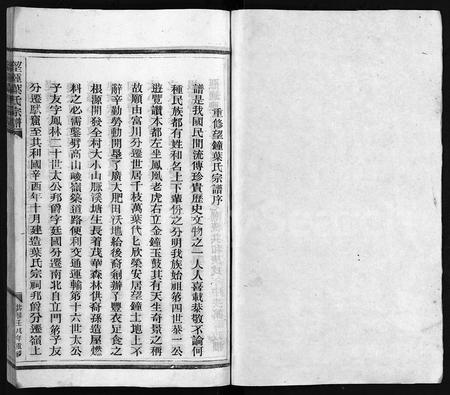 重修望鐘葉氏宗譜序
譜是我國民間流傳珍貴歷史文物之一人人喜載恭敬不論何
種民族都有姓和名上下輩份之分明我族始祖第四世恭一公
遊覽讀本都左坐鳳凰老虎右立金鐘玉鼓其有天生奇景之稱
故願由富川分遷世居千枝萬葉代匕欣榮安居望鐘土地上不
辭辛勤勞動開墾了廣大肥田沃地給後裔創辦了豐衣足食之
根源開發全村大小山脈溪塘生長着茂華森林供裔孫造屋燃
料之必需鑿劈高山峻嶺築道路便利交通運輸第十六世太公
子友字鳳林二十世太公邦爵字廷國分遷南北自立門第子友
分遷賦窟至其利國辛酉年十月建造葉氏宗祠邦爵分遷嶺上
望鐘葉氏宗譜
壬戌年重修